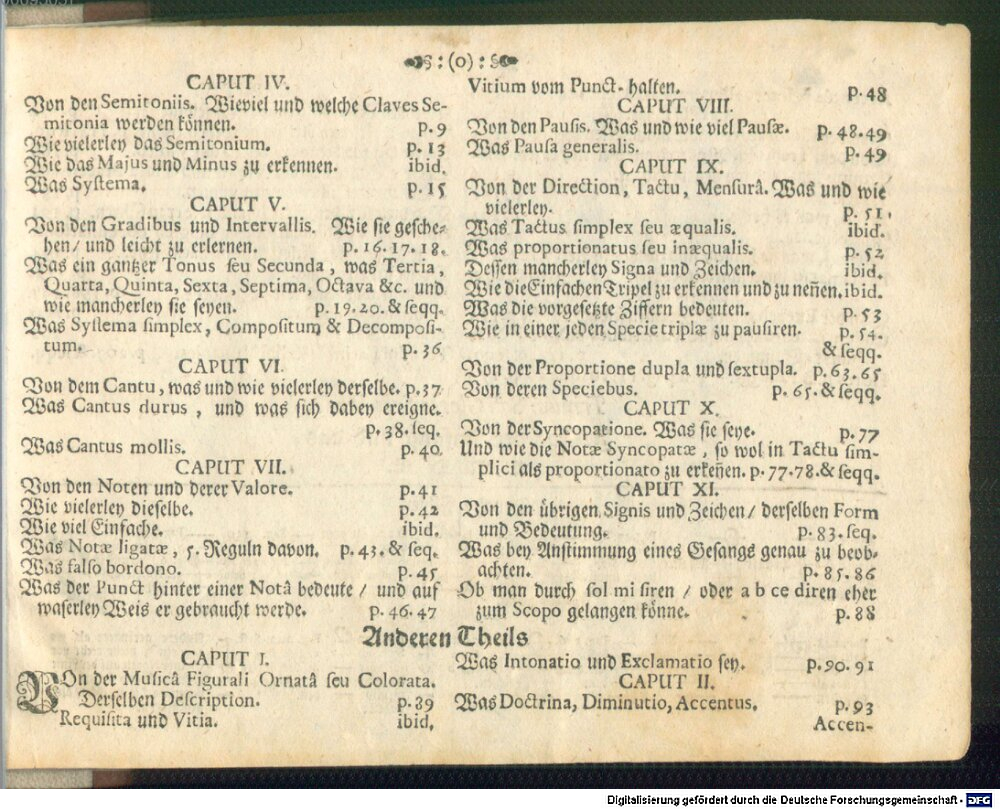 :(o):
CAPUT IV.
Von den Semitoniis. Wieviel und welche Claves Se-
mitonia werden können. p.9
Wie vielerley das Semitonium. p.13
Wie das Majus und Minus zu erkennen. ibid.
Was Systema. p.15
CAPUT V.
Von den Gradibus und Intervallis. Wie sie gesche-
hen/ und leicht zu erlernen. p.16.17.18.
Was ein gantzer Tonus seu Secunda, was Tertia,
Quarta, Quinta, Sexta, Septima, Octava &c. und
wie mancherley sie seyen. p.19.20.& seqq.
Was Systema simplex, Compositum & Decomposi-
tum. p.36
CAPUT VI.
Von dem Cantu, was und wie vielerley derselbe. p.37
Was Cantus durus, und was sich dabey ereigne.
p.38.seq.
Was Cantus mollis. p.40
CAPUT VII.
Von den Noten und derer Valore. p.41
Wie vielerley dieselbe. p.42
Wie viel Einfache. ibid.
Was Notæ ligatæ, 5. Reguln davon. p.43.& seq.
Was falso bordono. p.45
Was der Punct hinter einer Notâ bedeute/ und auf
waserley Weis er gebraucht werde. p.46.47
Vitium vom Punct-halten. p.48
CAPUT VIII.
Von den Pausis. Was und wie viel Pausæ. p.48.49
Was Pausa generalis. p.49
CAPUT IX.
Von der Direction, Tactu, Mensurâ. Was und wie
vielerley. p.51.
Was Tactus simplex seu æqualis. ibid.
Was proportionatus seu inæqualis. p.52
Dessen mancherley Signa und Zeichen. ibid.
Wie die Einfachen Tripel zu erkennen und zu neñen. ibid.
Was die vorgesetzte Ziffern bedeuten. p.53
Wie in einer jeden Specie triplæ zu pausiren. p.54.
& seqq.
Von der Proportione dupla und sextupla. p.63.65
Von deren Speciebus. p.65.& seqq.
CAPUT X.
Von der Syncopatione. Was sie seye. p.77
Und wie die Notæ Syncopatæ, so wol in Tactu sim-
plici als proportionato zu erkeñen. p.77.78.& seqq.
CAPUT XI.
Von den übrigen Signis und Zeichen/ derselben Form
und Bedeutung. p.83.seq.
Was bey Anstimmung eines Gesangs genau zu beob-
achten. p.85.86
Ob man durch sol mi siren/ oder a b ce diren eher
zum Scopo gelangen könne. p.88
Anderen Theils
CAPUT I.
VOn der Musicâ Figurali Ornatâ seu Colorata.
Derselben Description. p.89
Requisita und Vitia. ibid.
Was Intonatio und Exclamatio sey. p.90.91
CAPUT II.
Was Doctrina, Diminutio, Accentus. p.93
Accen-
Digitalisierung gefördert durch die Deutsche Forschungsgemeinschaft - DFG